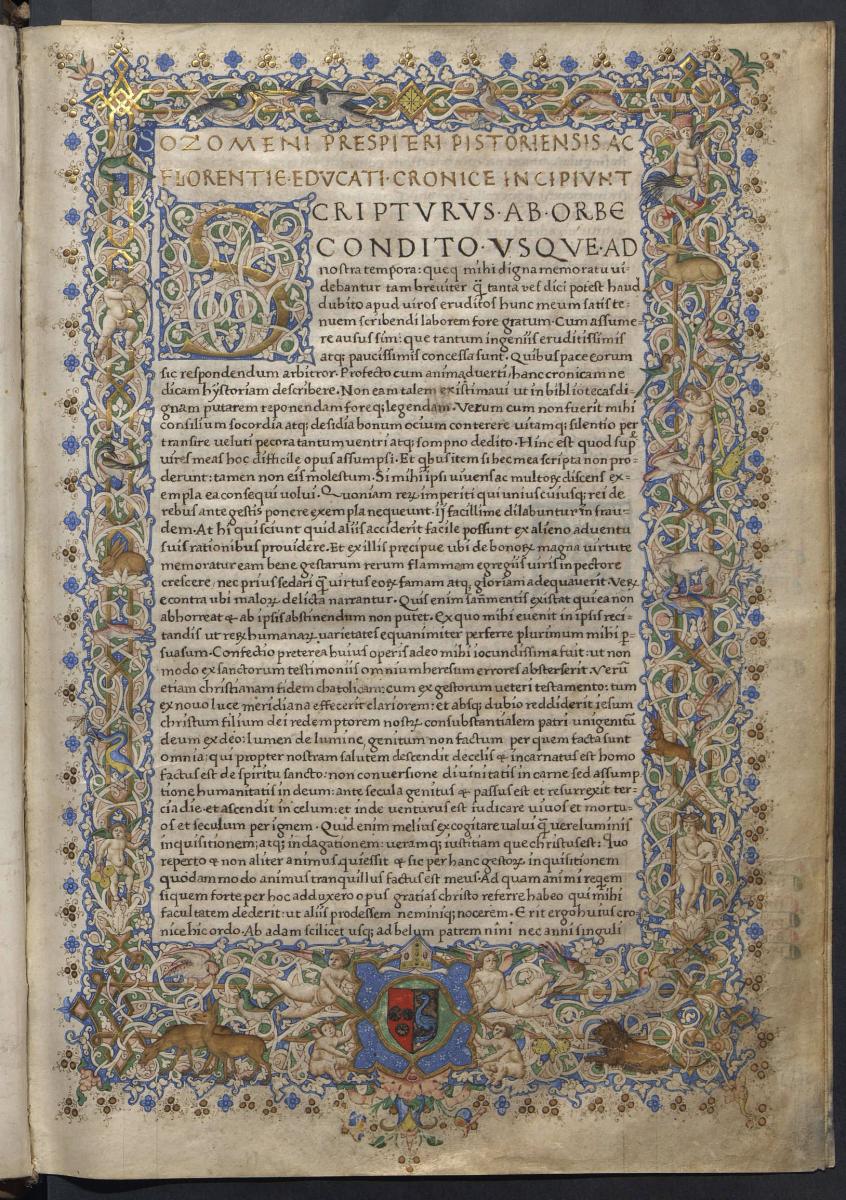 SOZOMENI PRESPITERI PISTORIENSIS AC
FLORENTIE·EDVCATI·CRONICE INCIPIVNT
SCRIPTVRVS·AB·ORBE
CONDITO·VSQVE·AD
nostra tempora: queq mihi digna memoratu vi-
debantur tam breviter q̃ tanta res dici potest haud
dubito apud viros eruditos hunc meum satis te-
nuem scribendi laborem fore gratum. Cum assume-
re ausus sim: que tantum ingeniis eruditissimis
atq; paucissimis concessa sunt. Quibus pace eorum
sic respondendum arbitror. Profecto cum animadverti, hanc cronicam ne
dicam hystoriam describere. Non eam talem existimaui ut in bibliotecas di-
gnam putarem reponendam fore q; legendam. Verum cum non fuerit mihi
consilium socordia atq; desidia bonum ocium conterere vitamq; silentio per
transire veluti pecora tantum ventri atq; sompno dedito. Hinc est quod sup
vires meas hoc difficile opus assumpsi. Et qbus item si hec mea scripta non pro-
derunt: tamen non eis molestum. Si mihi ipsi vivens ac multoꝝ discens ex-
empla ea consequi volui. Quoniam reꝝ imperiti qui uniuscuiusq; rei de
rebus ante gestis ponere exempla nequeunt. Ij facillime dilabuntur in frau-
dem. At hi qui sciunt quid aliis acciderit facile possunt ex alieno adventu
suis rationibus providere. Et ex illis precipue ubi de bonoꝝ magna virtute
memoratur eam bene gestarum rerum flammam egregiis viris in pectore
crescere, nec prius sedari q̃ virtus eoꝝ famam atq; gloriam adequaverit. Veꝝ
econtra ubi maloꝝ delicta narrantur. Quis enim san mentis existat qui ea non
abhorreat & ab ipsis abstinendum non putet. Ex quo mihi evenit in ipsis reci-
tandis ut reꝝ humanaꝝ varietates equanimiter perferre plurimum mihi p-
suasum. Confectio preterea huius operis adeo mihi iocundissima fuit: ut non
modo ex sanctorum testimoniis omnium heresum errores absterserit. Verũ
etiam christianam fidem chatolicam: cum ex gestorum veteri testamento: tum
ex novo luce meridiana effecerit clariorem: et absq; dubio reddiderit iesum
christum filium dei redemptorem nostꝝ consubstantialem patri unigenitũ
deum ex deo: lumen de lumine, genitum non factum per quem facta sunt
omnia: qui propter nostram salutem descendit decelis & incarnatus est homo
factus est de spiritu sancto: non conversione divinitatis in carne sed assump
tione humanitatis in deum: ante secula genitus & passus est et resurrexit ter-
cia die et ascendit in celum: et inde venturus est iudicare vivos et mortu-
os et seculum per ignem. Quid enim melius excogitare valui q̃ vere luminis
inquisitionem, atq; indagationem: veramq; iustitiam que christus est: Quo
reperto & non aliter animus quiessit & sic per hanc gestoꝝ inquisitionem
quodammodo animus tranquillus factus est meus. Ad quam animi reqem
siquem forte per hoc adduxero opus gratias christo referre habeo qui mihi
facultatem dederit: ut aliis prodessem neminiq; nocerem. Erit ergo huius cro-
nice hic ordo. Ab adam scilicet usq; ad belum patrem nini nec anni singuli